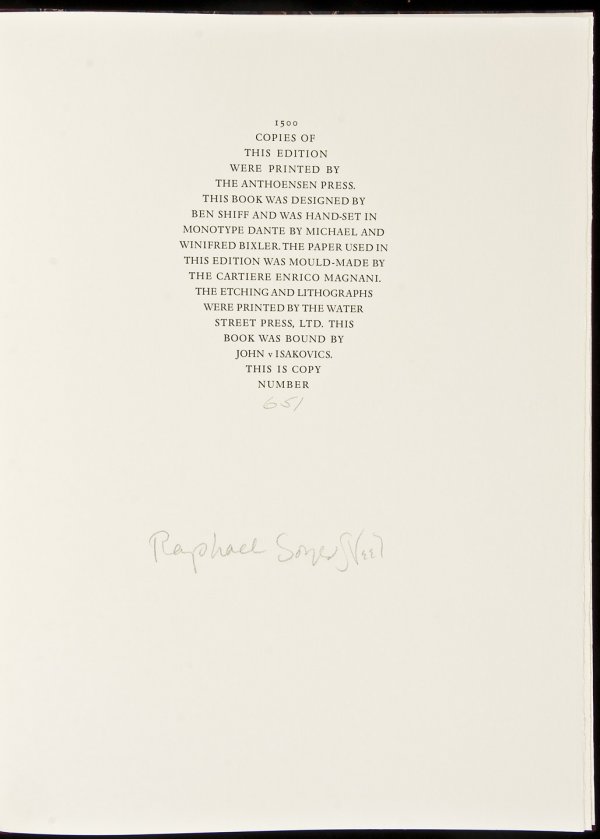 1500
COPIES OF
THIS EDITION
WERE PRINTED BY
THE ANTHOENSEN PRESS.
THIS BOOK WAS DESIGNED BY
BEN SHIFF AND WAS HAND-SET IN
MONOTYPE DANTE BY MICHAEL AND
WINIFRED BIXLER. THE PAPER USED IN
THIS EDITION WAS MOULD-MADE BY
THE CARTIERE ENRICO MAGNANI.
THE ETCHING AND LITHOGRAPHS
WERE PRINTED BY THE WATER
STREET PRESS, LTD. THIS
BOOK WAS BOUND BY
JOHN v ISAKOVICS.
THIS IS COPY
NUMBER
651
Raphael Soyer